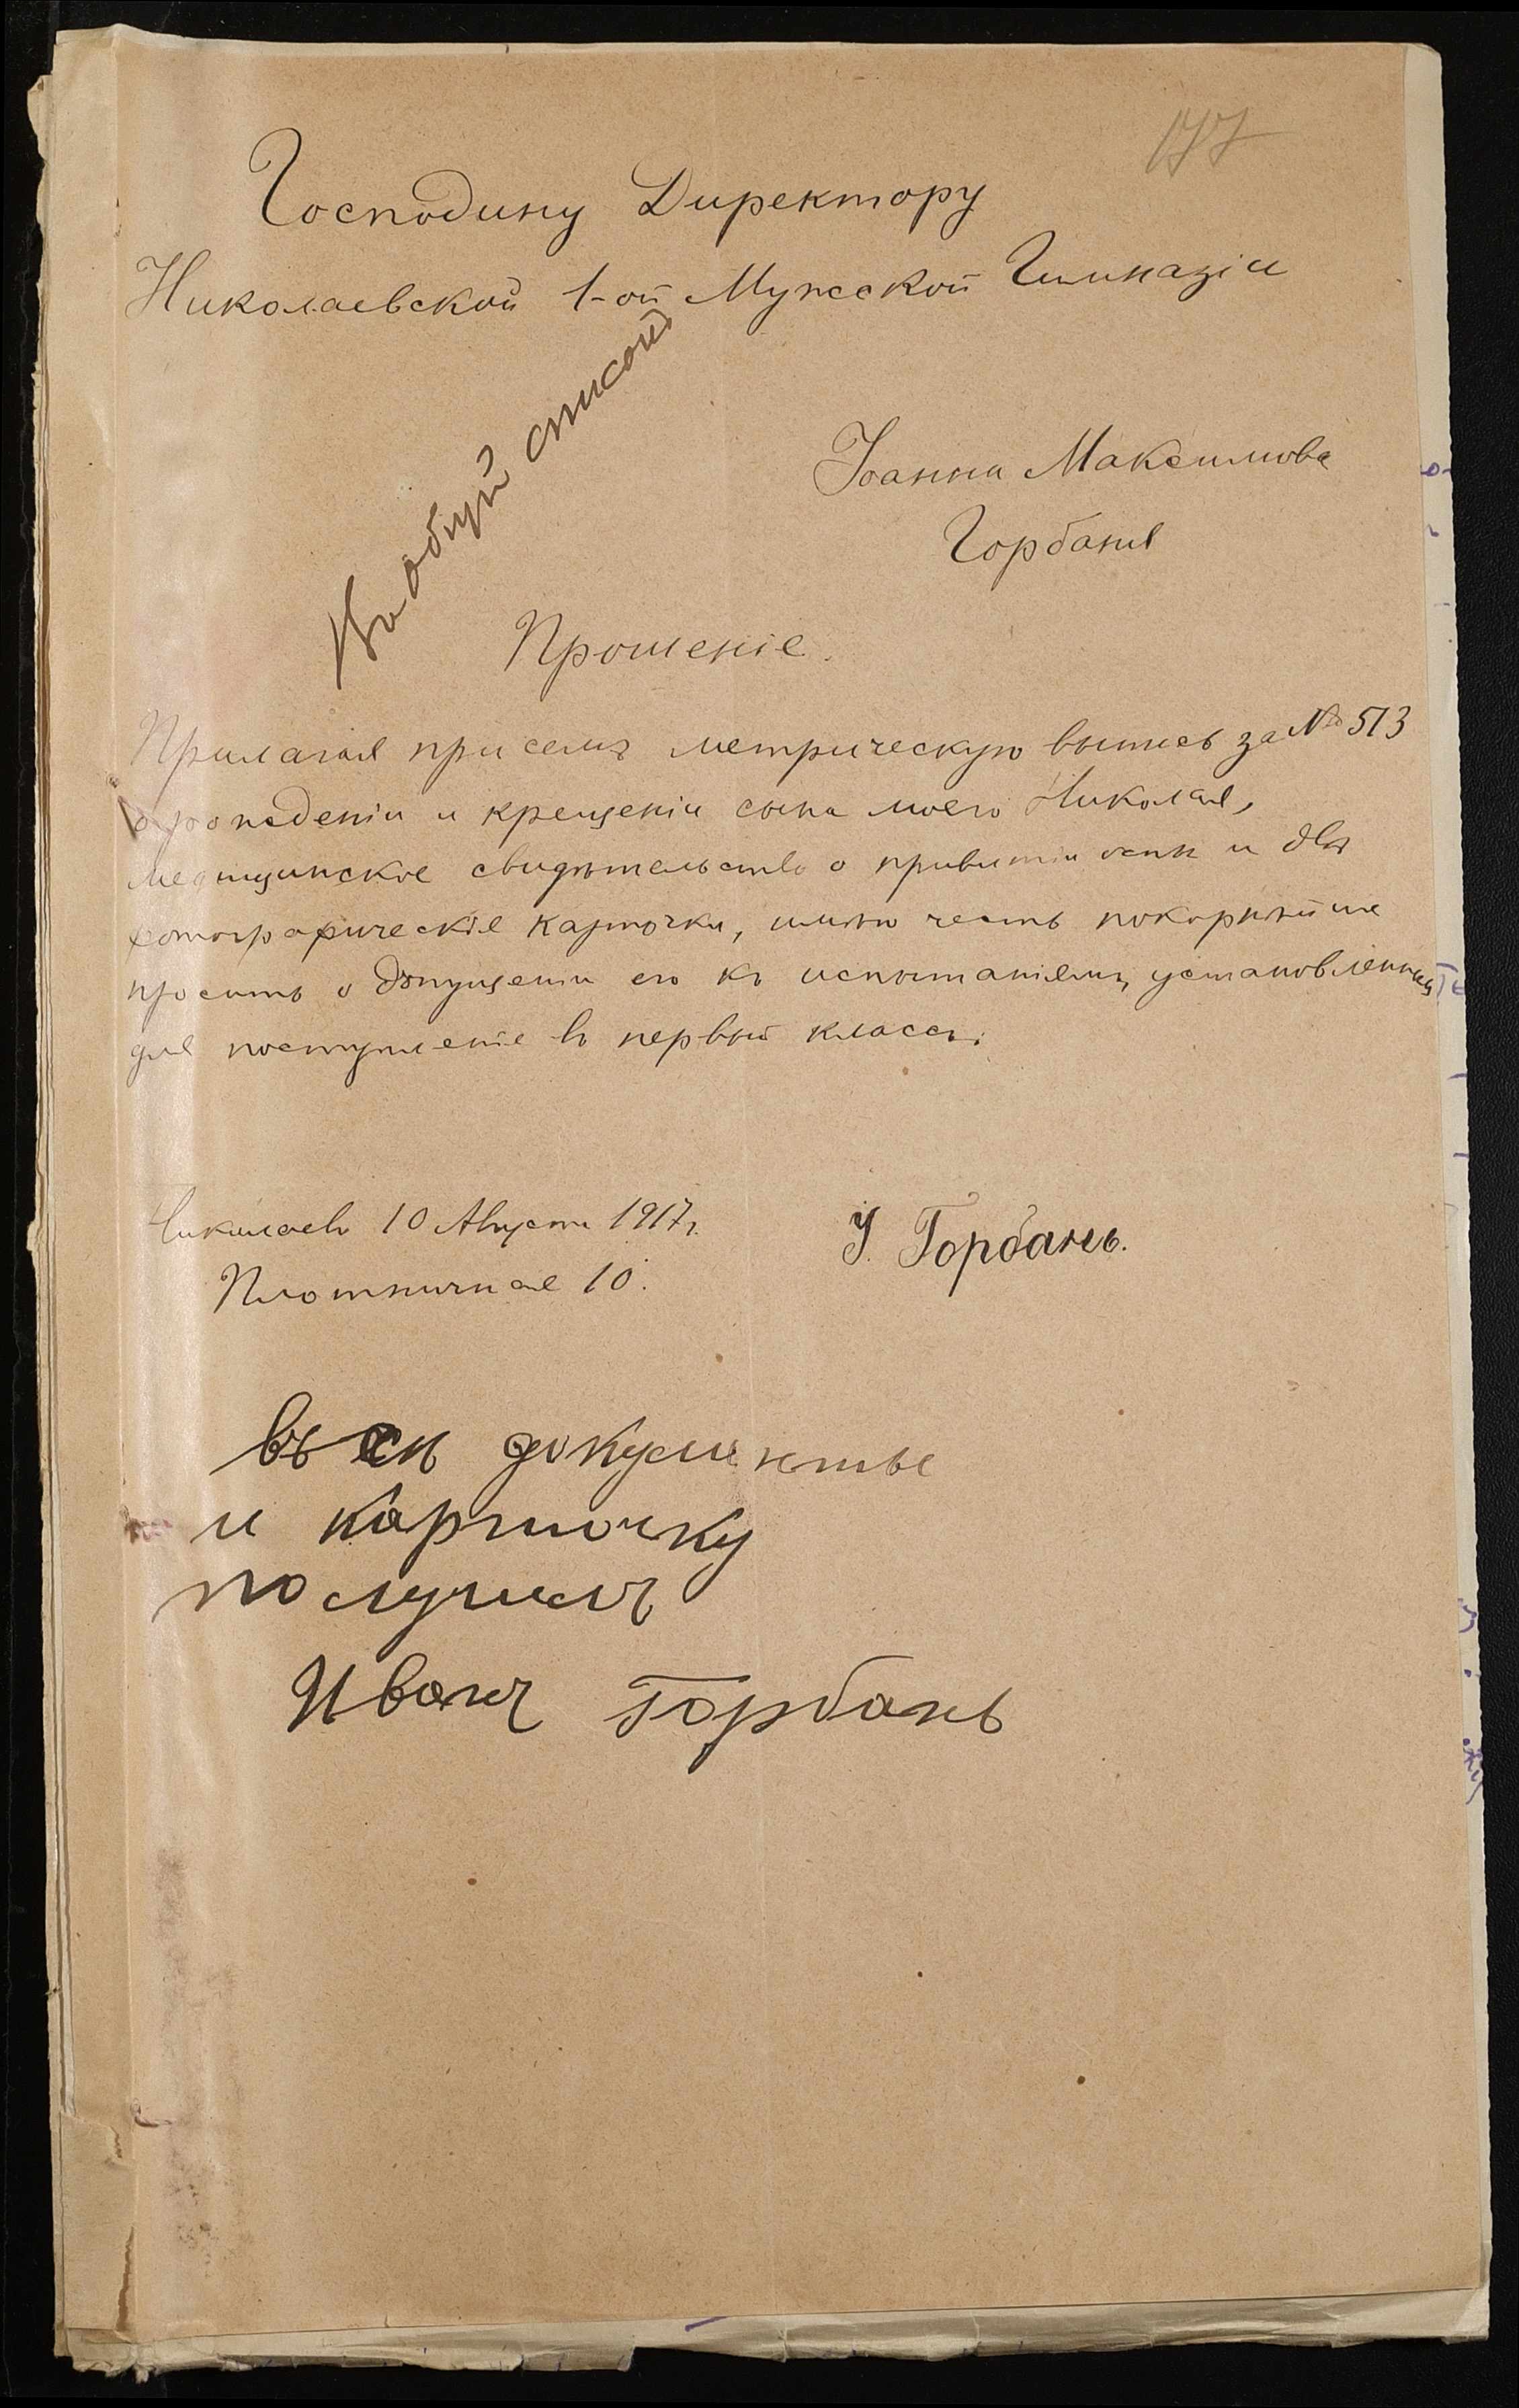 177
Господину Директору
Николаевской 1-ой Мужской Гимназіи
Въ общій списокъ
Іоанна Максимова
Горбаня
Прошеніе.
Прилагая при семъ метрическую выпись за № 513
о рождении и крещеніи сына моего Николая,
медицинское свидѣтельство о привитіи оспы и двѣ
фотографическіе карточки, имѣю честь покорнѣйше
просить о допущеніи его къ испытаніямъ, установленнымъ
для поступленіе въ первый классъ.
Николаевъ 10 Августа 1917 г.
Плотничная 10.
І. Горбань.
всѣ документы
и карточку
получилъ
Иванъ Горбань